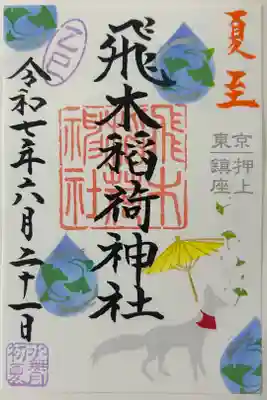 夏至
東京押上
鎮座
飛木稲荷神社
飛木稲荷神社
令和七年六月二十一日
水無月
初夏